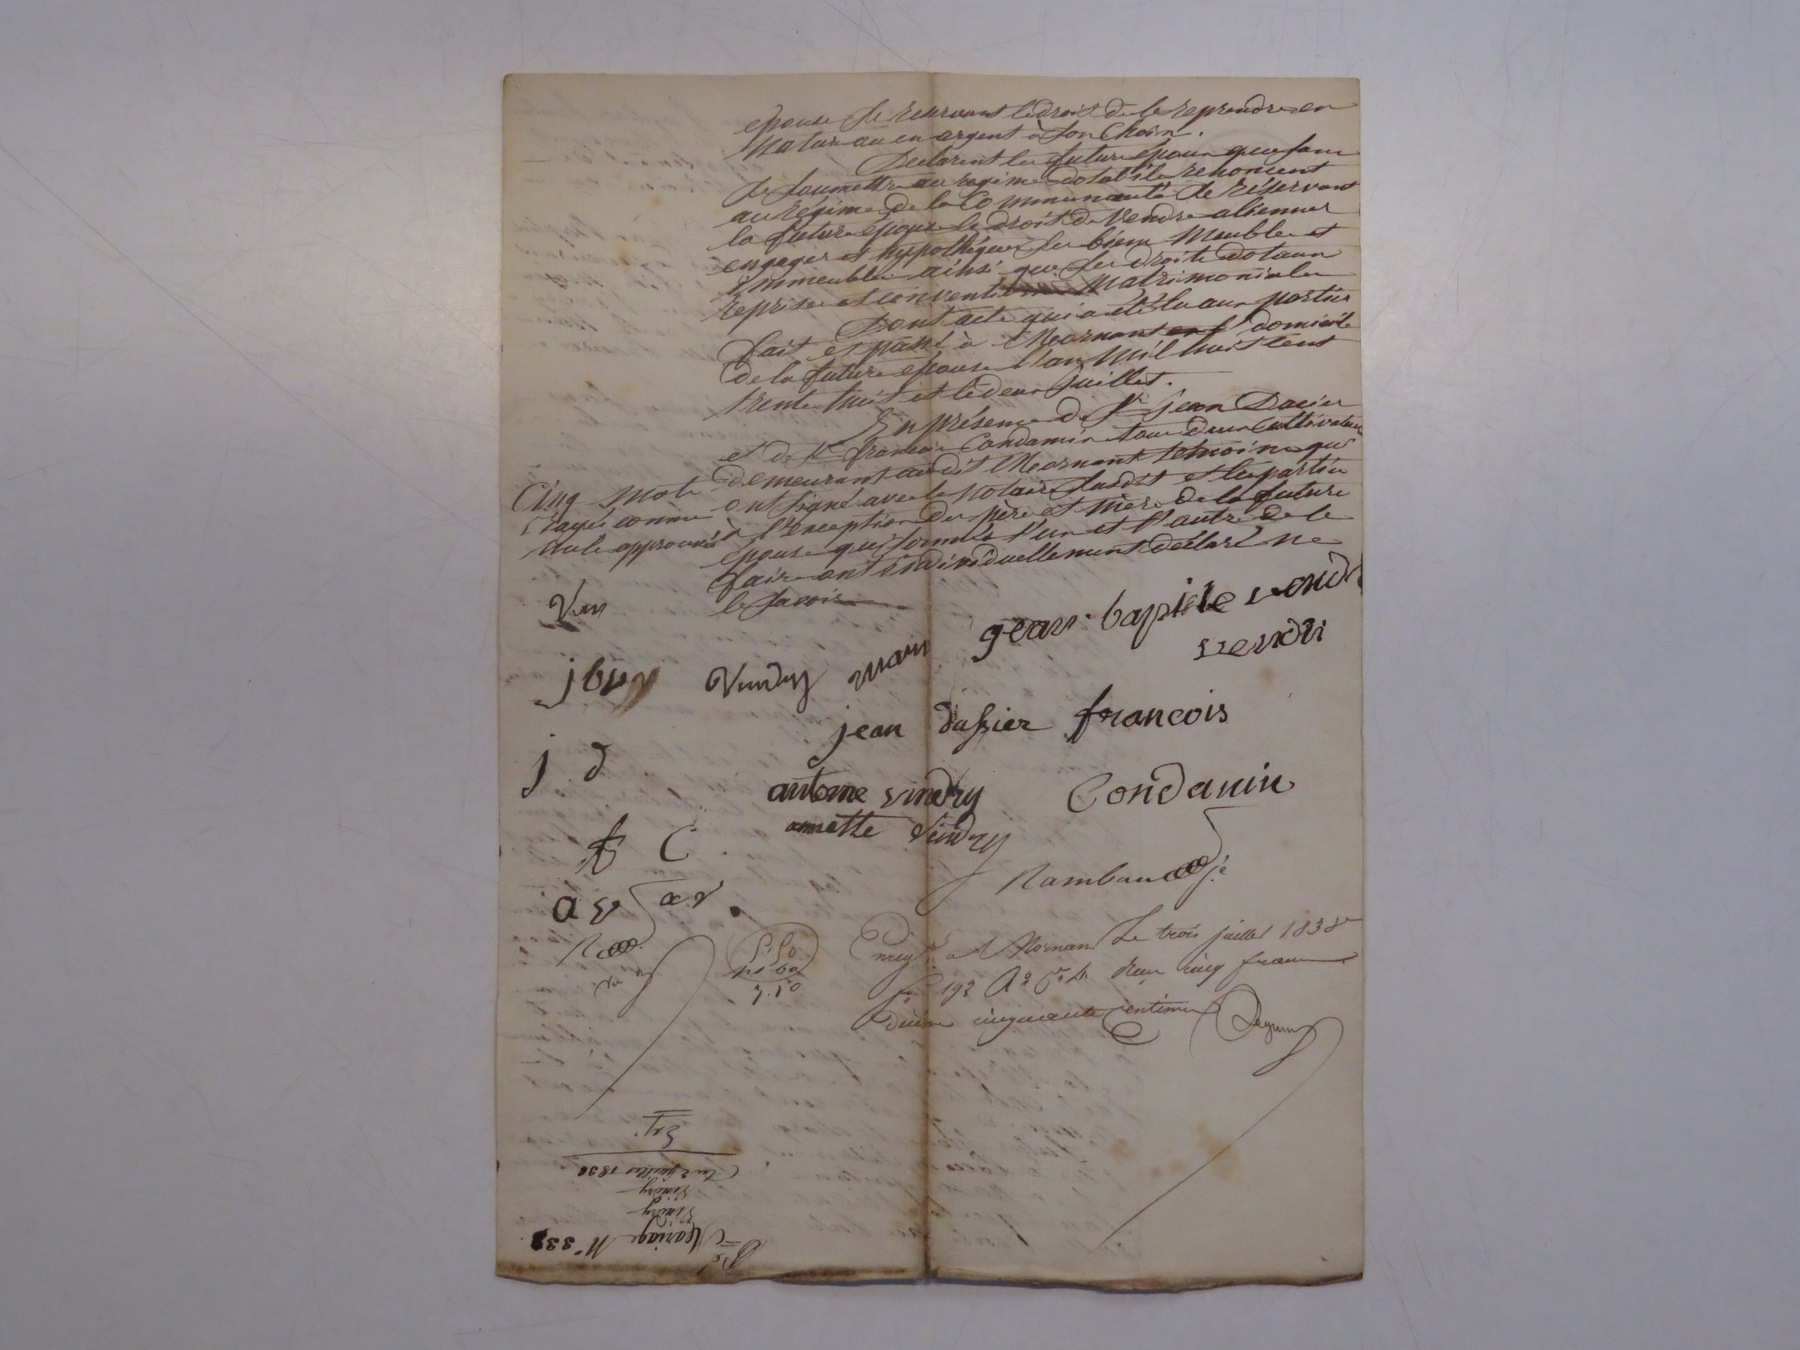 épouse se reservant le droit de le reprendre en
Nature ou en argent à son Choix.
Declarent les futurs époux que sans
se soumettre au regime dotal ils renoncent
au régime de la Communauté se réservant
la future épouse le droit de Vendre aliener
engager et hypothéquer ses biens Meubles et
immeubles ainsi que ses droits dotaux
reprises et conventions Matrimoniales
Dont acte qui a été lu aux parties
fait et passé à Mornant domicile
de la future épouse l'an Mil huit cent
trente huit et le deux Juillet.
En présence de Sr jean Dacier
et de Sr francois Condamin tous deux Cultivateurs
demeurant audit Mornant temoins qui
ont signé avec le Notaire susdit et les parties
à l'exception des père et mère de la future
épouse qui sommés l'un et l'autre de le
faire ont individuellement déclaré ne
le savoir
Cinq mots
rayés comme
nuls approuvés
jean baptiste
Vindry
jean dassier francois
j d
antoine vindry Condamin
annette Vindry
f C
a v a.v
Rambaud
Enregé à Mornant Le trois juillet 1838
fo 192 Ro Ce 4 Reçu cinq francs
décime cinquante centimes
5.50
Mariage No 33
Vindry
Vindry
Du 2 juillet 1838